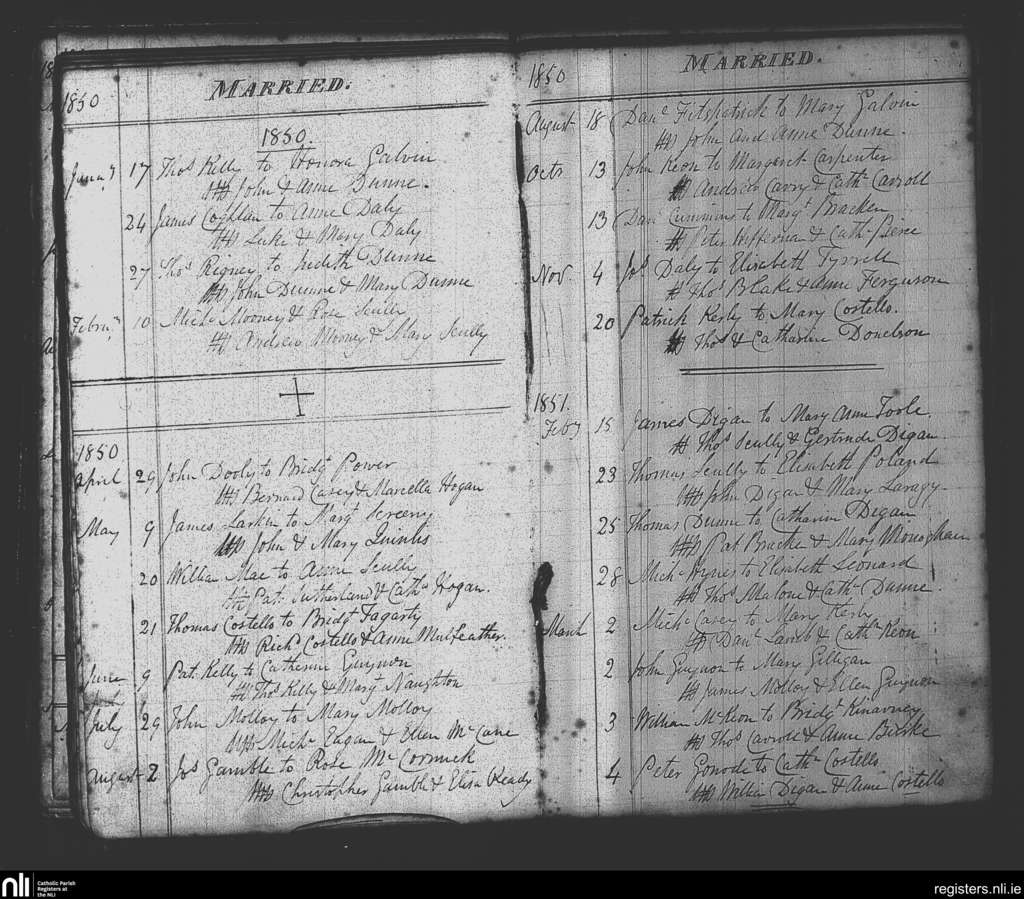 MARRIED.
1850
1850.
Janu.y 17 Thos Kelly to Honora Galvin
Wts John & Anne Dunne.
24 James Coghlan to Anne Daly
Wts Luke & Mary Daly
27 Thos Rigney to Judith Dunne
Wts John Dunne & Mary Dunne
Febru.y 10 Mich. Mooney & Rose Scully
Wts Andrew Mooney & Mary Scully
1850
April 29 John Dooly to Bridgt Power
Wts Bernard Casey & Marcella Hogan
May 9 James Larkin to Margt
Wts John & Mary
20 William Mae to Anne Scully
Wts Pat. Sutherland & Cath. Hogan.
21 Thomas Costello to Bridgt Fagarty
Wts Richd Costello & Anne Mulfeather.
June 9 Pat. Kelly to Catherine Guynon
Wts Thos Kelly & Margt Naughton
July 29 John Molloy to Mary Molloy
Wts Michl Eagan & Ellen McCane
August 2 Jos Gamble to Rose McCormick
Wts Christopher Gamble & Eliza Ready
MARRIED.
1850
August 18 Danl Fitspatrick to Mary Galvin
Wts John and Anne Dunne.
Octr 13 John Keon to Margaret Carpenter
Wts Andrew Carry & Cath. Carroll
13 Danl Cummins to Margt Bracken
Wt Peter Heffernan & Cath.
Nov 4 Jos Daly to Elisabeth Tyrrell
Wts Thos Blake & Anne Ferguson
20 Patrick Kerly to Mary Costello.
Wts Thos & Catharine Donelson
1851.
Feby 15 James Digan to Mary Anne Toole.
Wt Thos Scully & Gertrude Digan
23 Thomas Scully to Elisabeth Poland
Wts John Digan & Mary Laragy.
25 Thomas Dunne to Catharine Digan
Wts Pat Bracken & Mary Monoghan
28 Mich. Hynes to Elisabeth Leonard
Wts Thos Malone & Cath. Dunne.
March 2 Mich. Casey to Mary Kerly
Wts Danl Lamb & Cath. Keon
2 John Guynon to Mary Gilligan
Wts James Molloy & Ellen Guynon
3 William McKeon to Bridgt Kinarney
Wts Thos Carroll & Anne Burke
4 Peter Gonode to Cath. Costello
Wts William Digan & Anne Costello
nli
Catholic Parish
Registers at
the NLI
registers.nli.ie